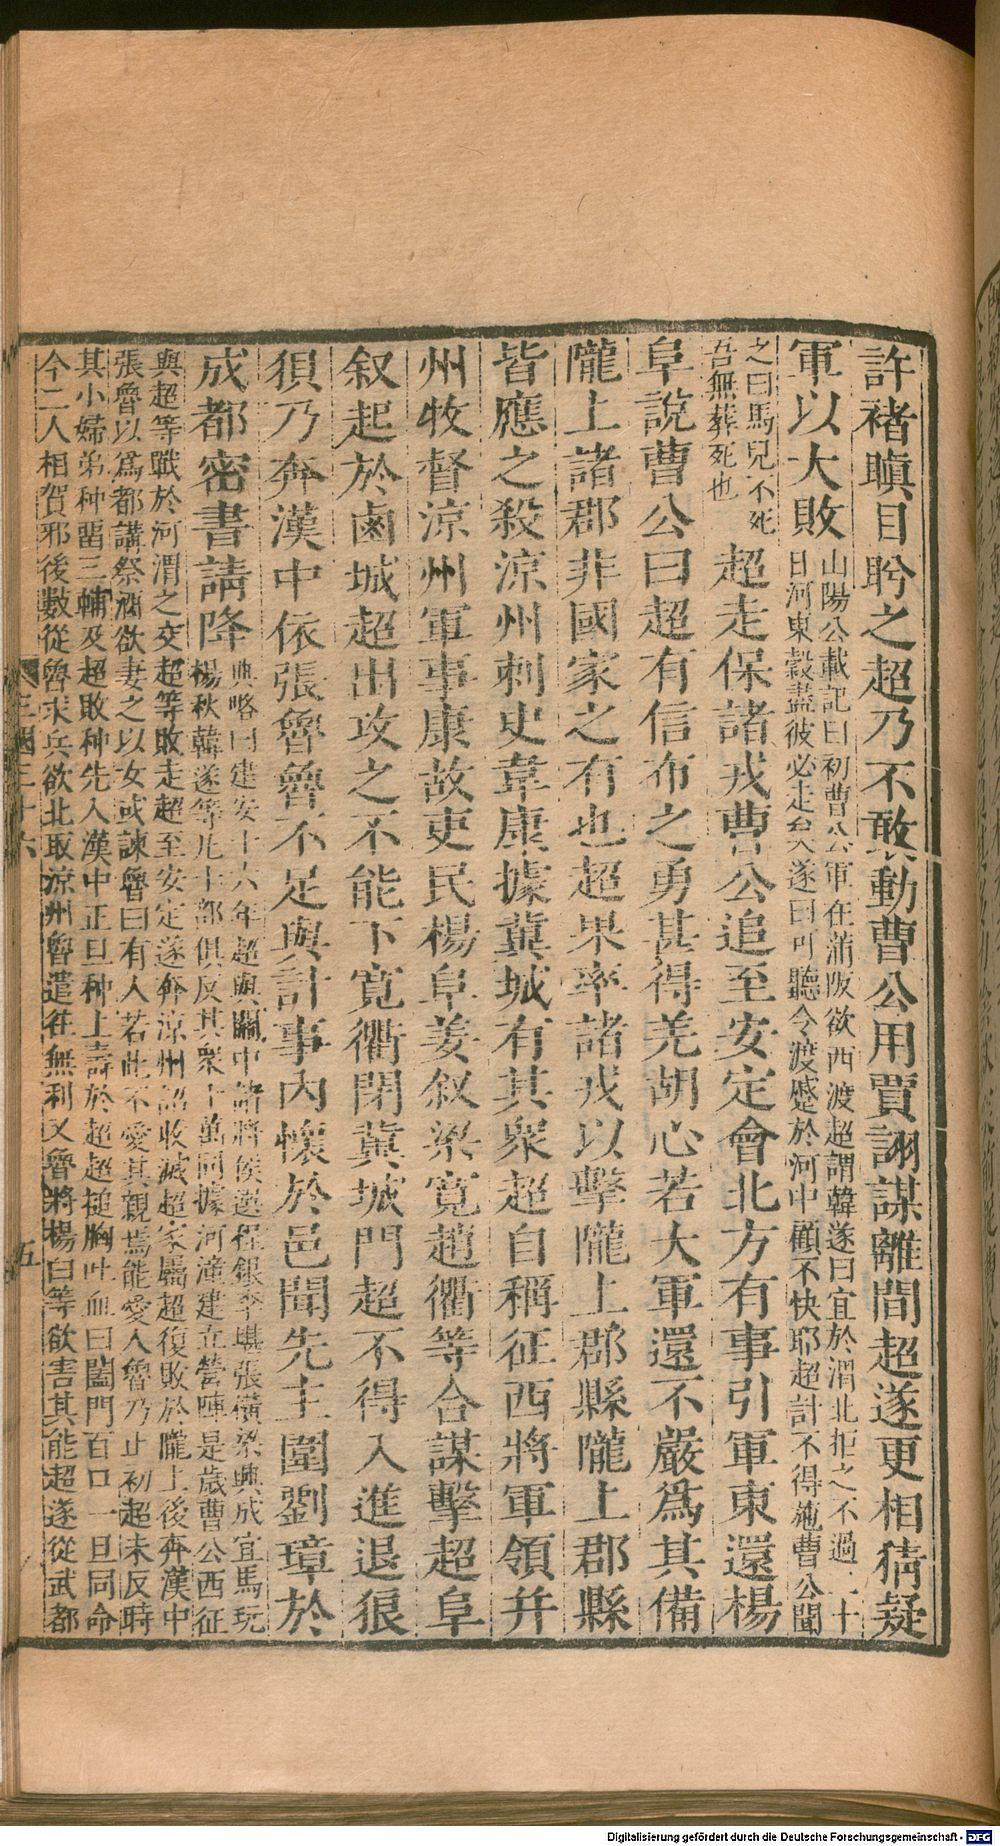 許褚瞋目盻之超乃不敢動曹公用賈詡謀離間超遂更相猜疑
軍以大敗
山陽公載記曰初曹公軍在蒲阪欲西渡超謂韓遂曰宜於渭北拒之不過二十
日河東穀盡彼必走矣遂曰可聽令渡蹙於河中顧不快耶超計不得施曹公聞
之曰馬兒不死
吾無葬死也
超走保諸戎曹公追至安定會北方有事引軍東還楊
阜說曹公曰超有信布之勇甚得羌胡心若大軍還不嚴爲其備
隴上諸郡非國家之有也超果率諸戎以擊隴上郡縣隴上郡縣
皆應之殺涼州刺史韋康據冀城有其眾超自稱征西將軍領并
州牧督涼州軍事康故吏民楊阜姜叙梁寬趙衢等合謀擊超阜
叙起於鹵城超出攻之不能下寬衢閉冀城門超不得入進退狼
狽乃奔漢中依張魯魯不足與計事內懷於邑聞先主圍劉璋於
成都密書請降
典略曰建安十六年超與關中諸將侯選程銀李堪張橫梁興成宜馬玩
楊秋韓遂等凡十部俱反其眾十萬同據河潼建立營陣是歲曹公西征
與超等戰於河渭之交超等敗走超至安定遂奔涼州詔收滅超家屬超復敗於隴上後奔漢中
張魯以爲都講祭酒欲妻之以女或諫魯曰有人若此不愛其親焉能愛人魯乃止初超未反時
其小婦弟种留三輔及超敗种先入漢中正旦种上壽於超超搥胸吐血曰闔門百口一旦同命
今二人相賀邪後數從魯求兵欲北取涼州魯遣往無利又魯將楊白等欲害其能超遂從武都
三十六
五
Digitalisierung gefördert durch die Deutsche Forschungsgemeinschaft - DFG